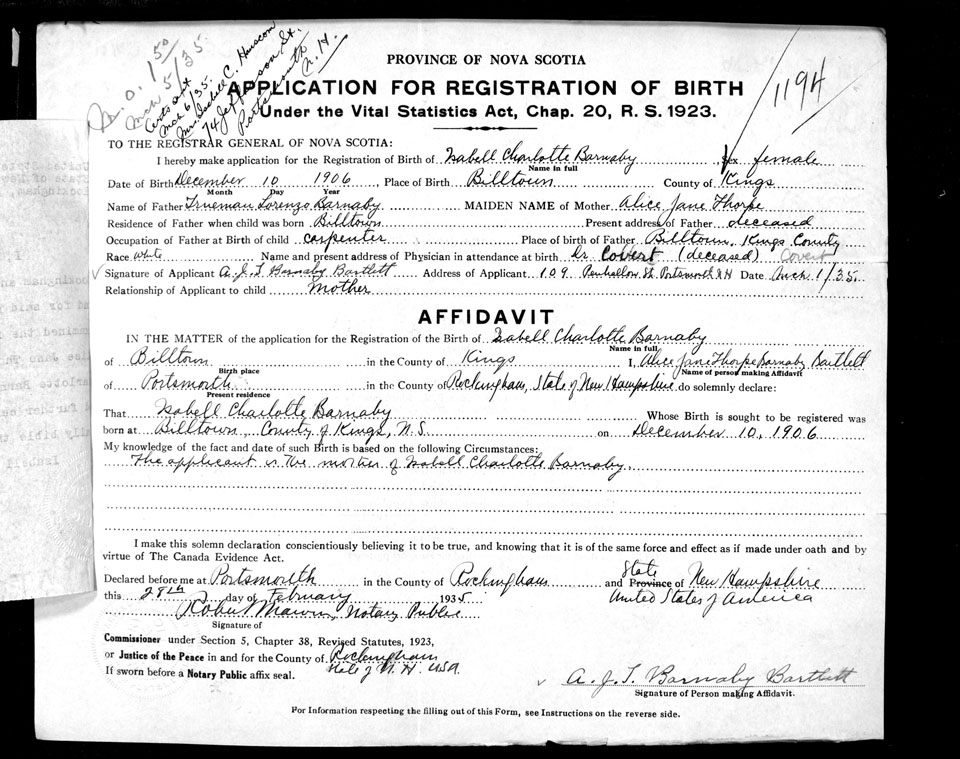 M.O. 1.50
Mch 5/35.
Certs out
Mch 6/35.
Mrs. Isabell C.
74 Jefferson St.
Portsmouth
N. H.
1194
PROVINCE OF NOVA SCOTIA
APPLICATION FOR REGISTRATION OF BIRTH
Under the Vital Statistics Act, Chap. 20, R. S. 1923.
TO THE REGISTRAR GENERAL OF NOVA SCOTIA:
I hereby make application for the Registration of Birth of Isabell Charlotte Barnaby Sex female
Name in full
Date of Birth December 10 1906 Place of Birth Billtown County of Kings
Month Day Year
Name of Father Trueman Lorenzo Barnaby MAIDEN NAME of Mother Alice Jane Thorpe
Residence of Father when child was born Billtown Present address of Father deceased
Occupation of Father at Birth of child carpenter Place of birth of Father Billtown, Kings County
Race White Name and present address of Physician in attendance at birth Dr. Covert (deceased) Covert
Signature of Applicant A. J. T. Barnaby Bartlett Address of Applicant 109 Penhallow St. Portsmouth N H Date Mch 1/35.
Relationship of Applicant to child Mother
AFFIDAVIT
IN THE MATTER of the application for the Registration of the Birth of Isabell Charlotte Barnaby
Name in full
of Billtown in the County of Kings I, Alice Jane Thorpe Barnaby Bartlett
Birth place Name of person making Affidavit
of Portsmouth in the County of Rockingham, State of New Hampshire do solemnly declare:
Present residence
That Isabell Charlotte Barnaby Whose Birth is sought to be registered was
born at Billtown, County of Kings, N.S. on December 10, 1906
My knowledge of the fact and date of such Birth is based on the following Circumstances:
The applicant is the mother of Isabell Charlotte Barnaby.
I make this solemn declaration conscientiously believing it to be true, and knowing that it is of the same force and effect as if made under oath and by
virtue of The Canada Evidence Act.
Declared before me at Portsmouth in the County of Rockingham and State Province of New Hampshire
this 28th day of February 1935 United States of America
Robert Marvin, Notary Public
Signature of
Commissioner under Section 5, Chapter 38, Revised Statutes, 1923,
or Justice of the Peace in and for the County of Rockingham
State of N. H. USA.
If sworn before a Notary Public affix seal.
A. J. T. Barnaby Bartlett
Signature of Person making Affidavit.
For Information respecting the filling out of this Form, see Instructions on the reverse side.